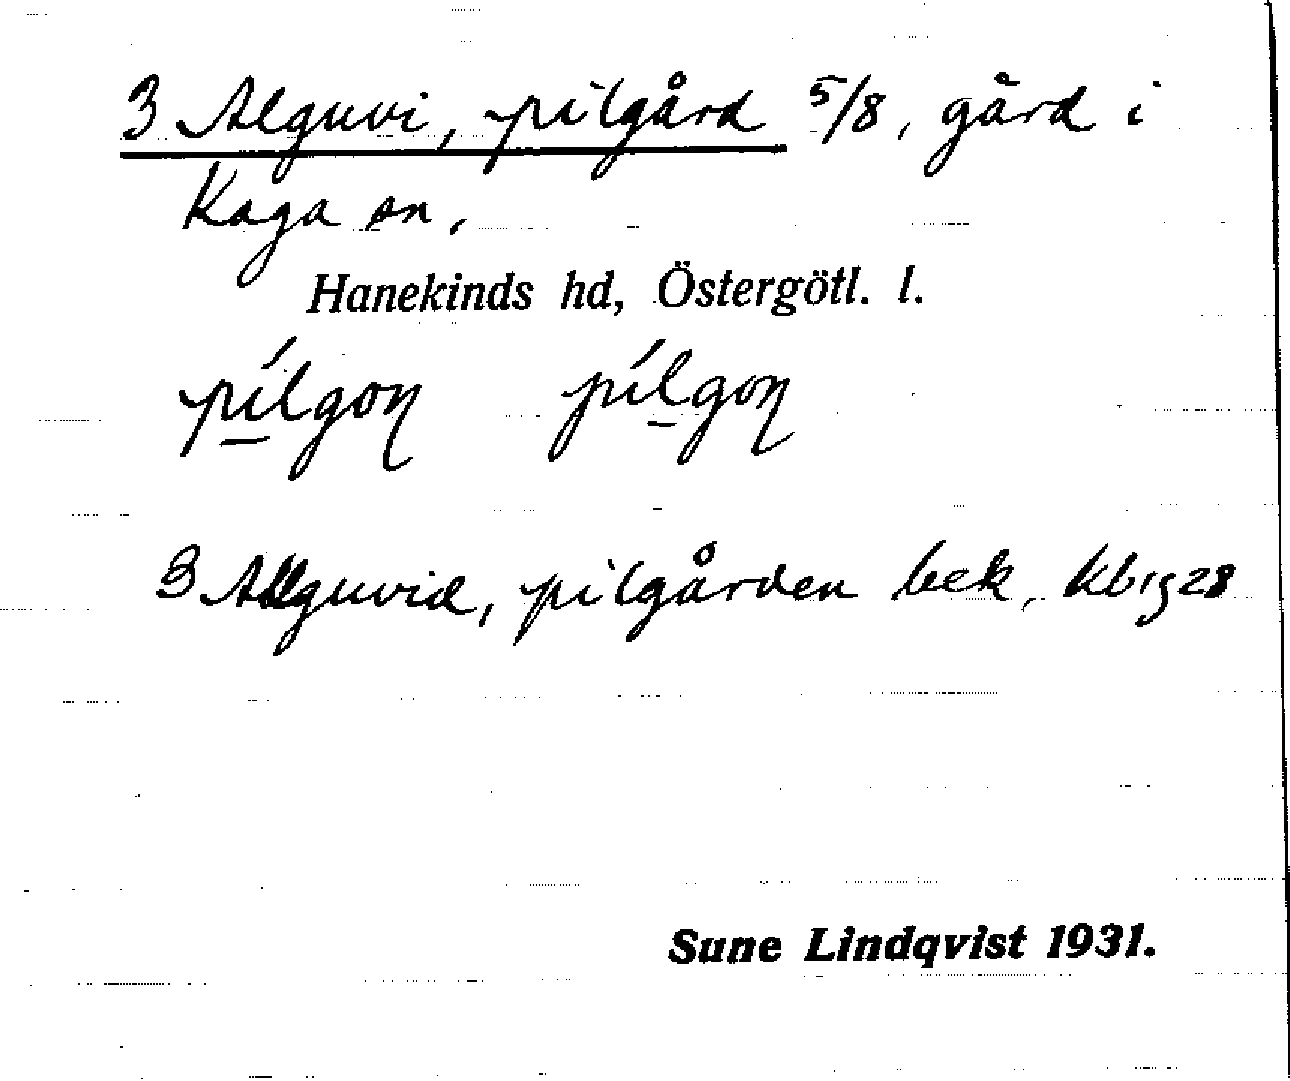 3 Alguvi, pilgård 5/8, gård i
Kaga sn,
Hanekinds hd, Östergötl. l.
pílgoɳ pílgoɳ
3 Allguvid, pilgården bek, kb 1928
Sune Lindqvist 1931.